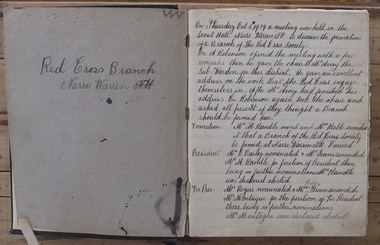 Red Cross Branch
Narre Warren Nth
On Thursday Oct 5th 1939 a meeting was held in the
Scout Hall Narre Warren Nth to discuss the formation
of a Branch of the Red Cross Society.
Cr A Robinson opened the meeting with a few
remarks then he gave the chair to Mr
Sub Warden for this district. He gave an excellent
address on the work that the Red Cross engage
themselves in. After Mr had finished his
address Cr Robinson again took the chair and
asked all present if they thought a Branch
should be formed here
Formation Mr H Kandle moved and Mrs Webb seconded
it that a Branch of the Red Cross Society
be formed at Narre Warren Nth Carried
President Mrs Bailey nominated & Mrs seconded
Mrs H Kandle for position of President there
being no further nominations Mrs Kandle
was declared elected
Vice Pres Mrs Rogers nominated & Mrs seconded
Mrs Montague for the position of Vice President
there being no further nominations
Mrs Montague was declared elected